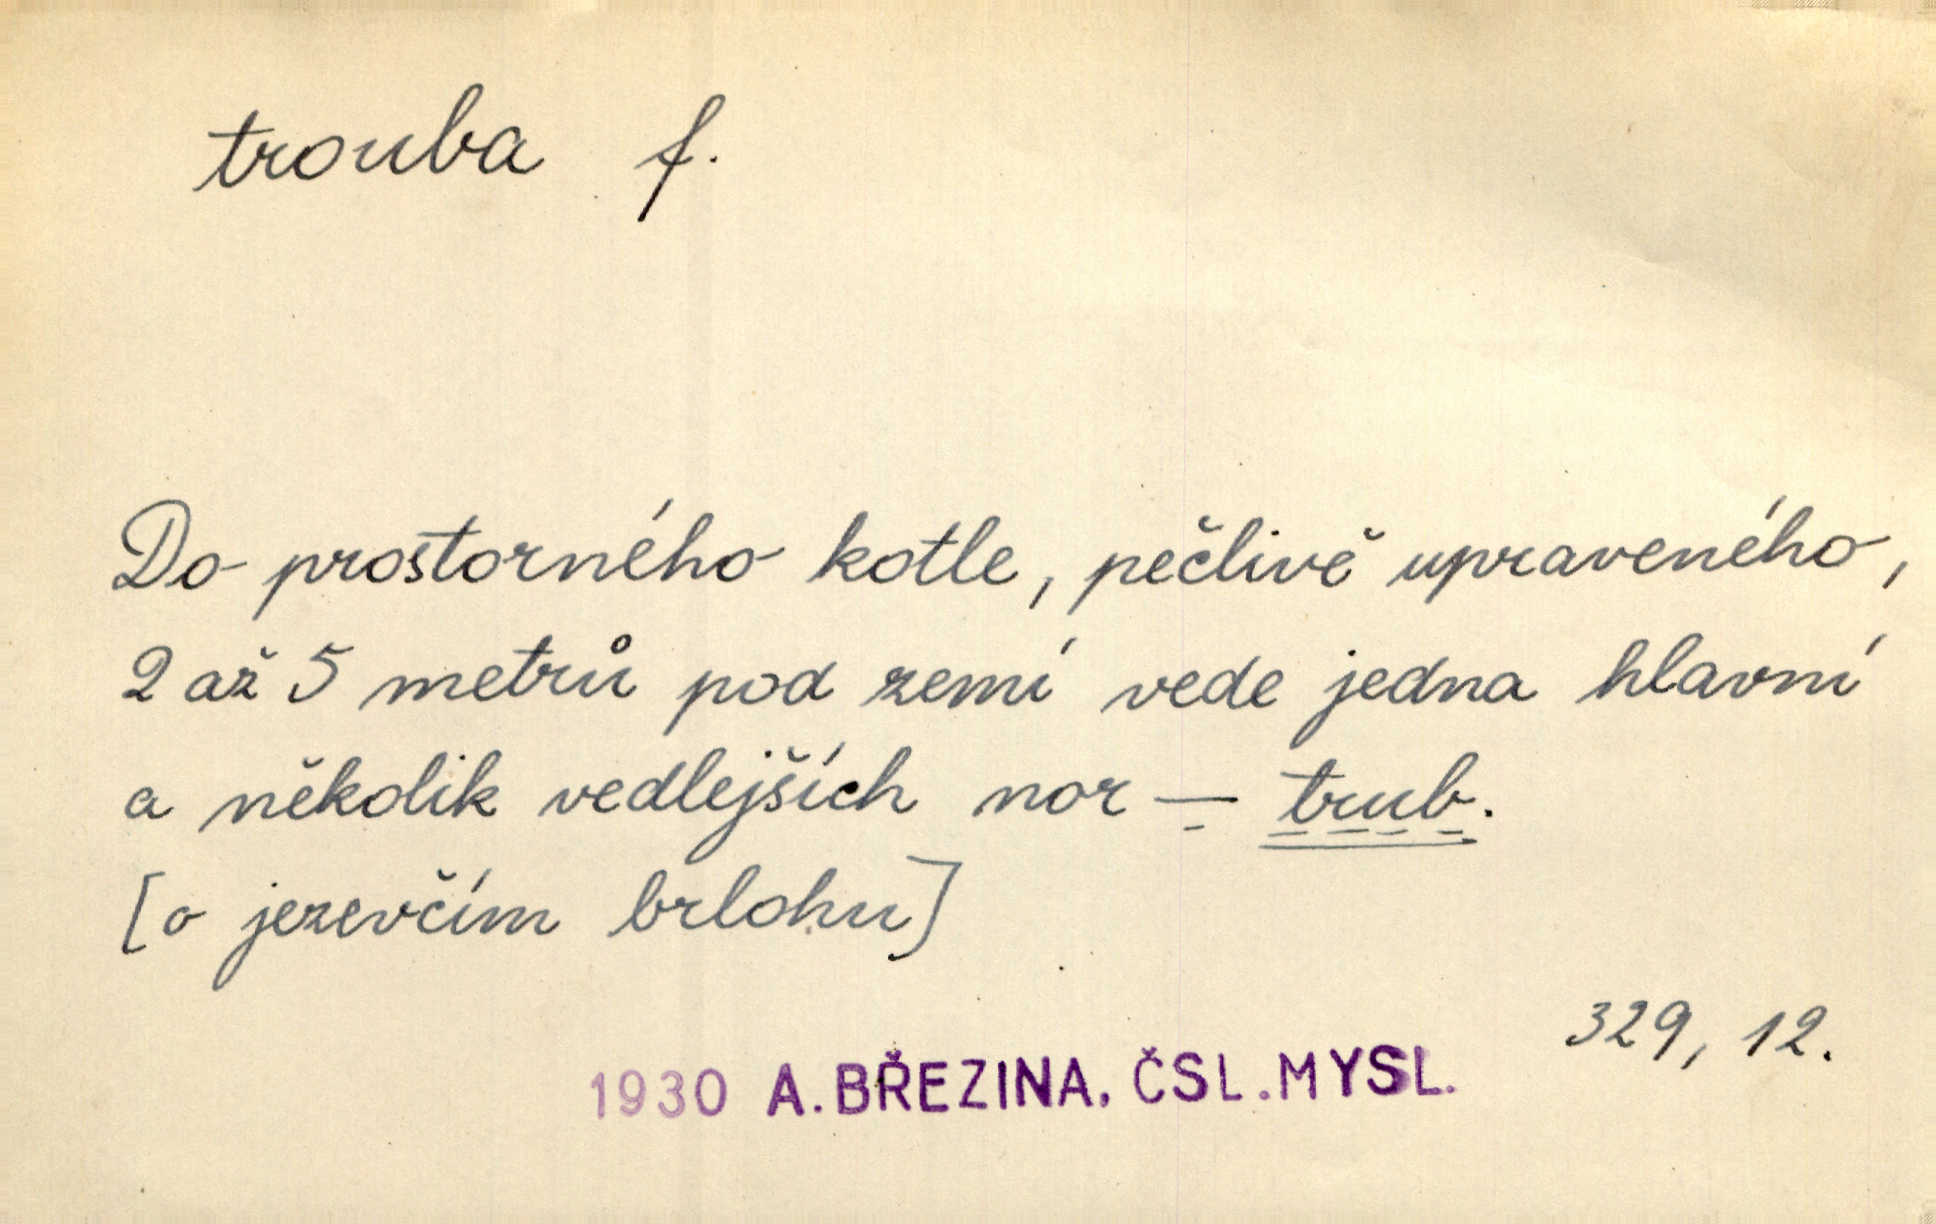 trouba f.
Do prostorného kotle, pečlivě upraveného,
2 až 5 metrů pod zemí vede jedna hlavní
a několik vedlejších nor — trub.
[o jezevčím brlohu]
329, 12.
1930 A. BŘEZINA, ČSL. MYSL.